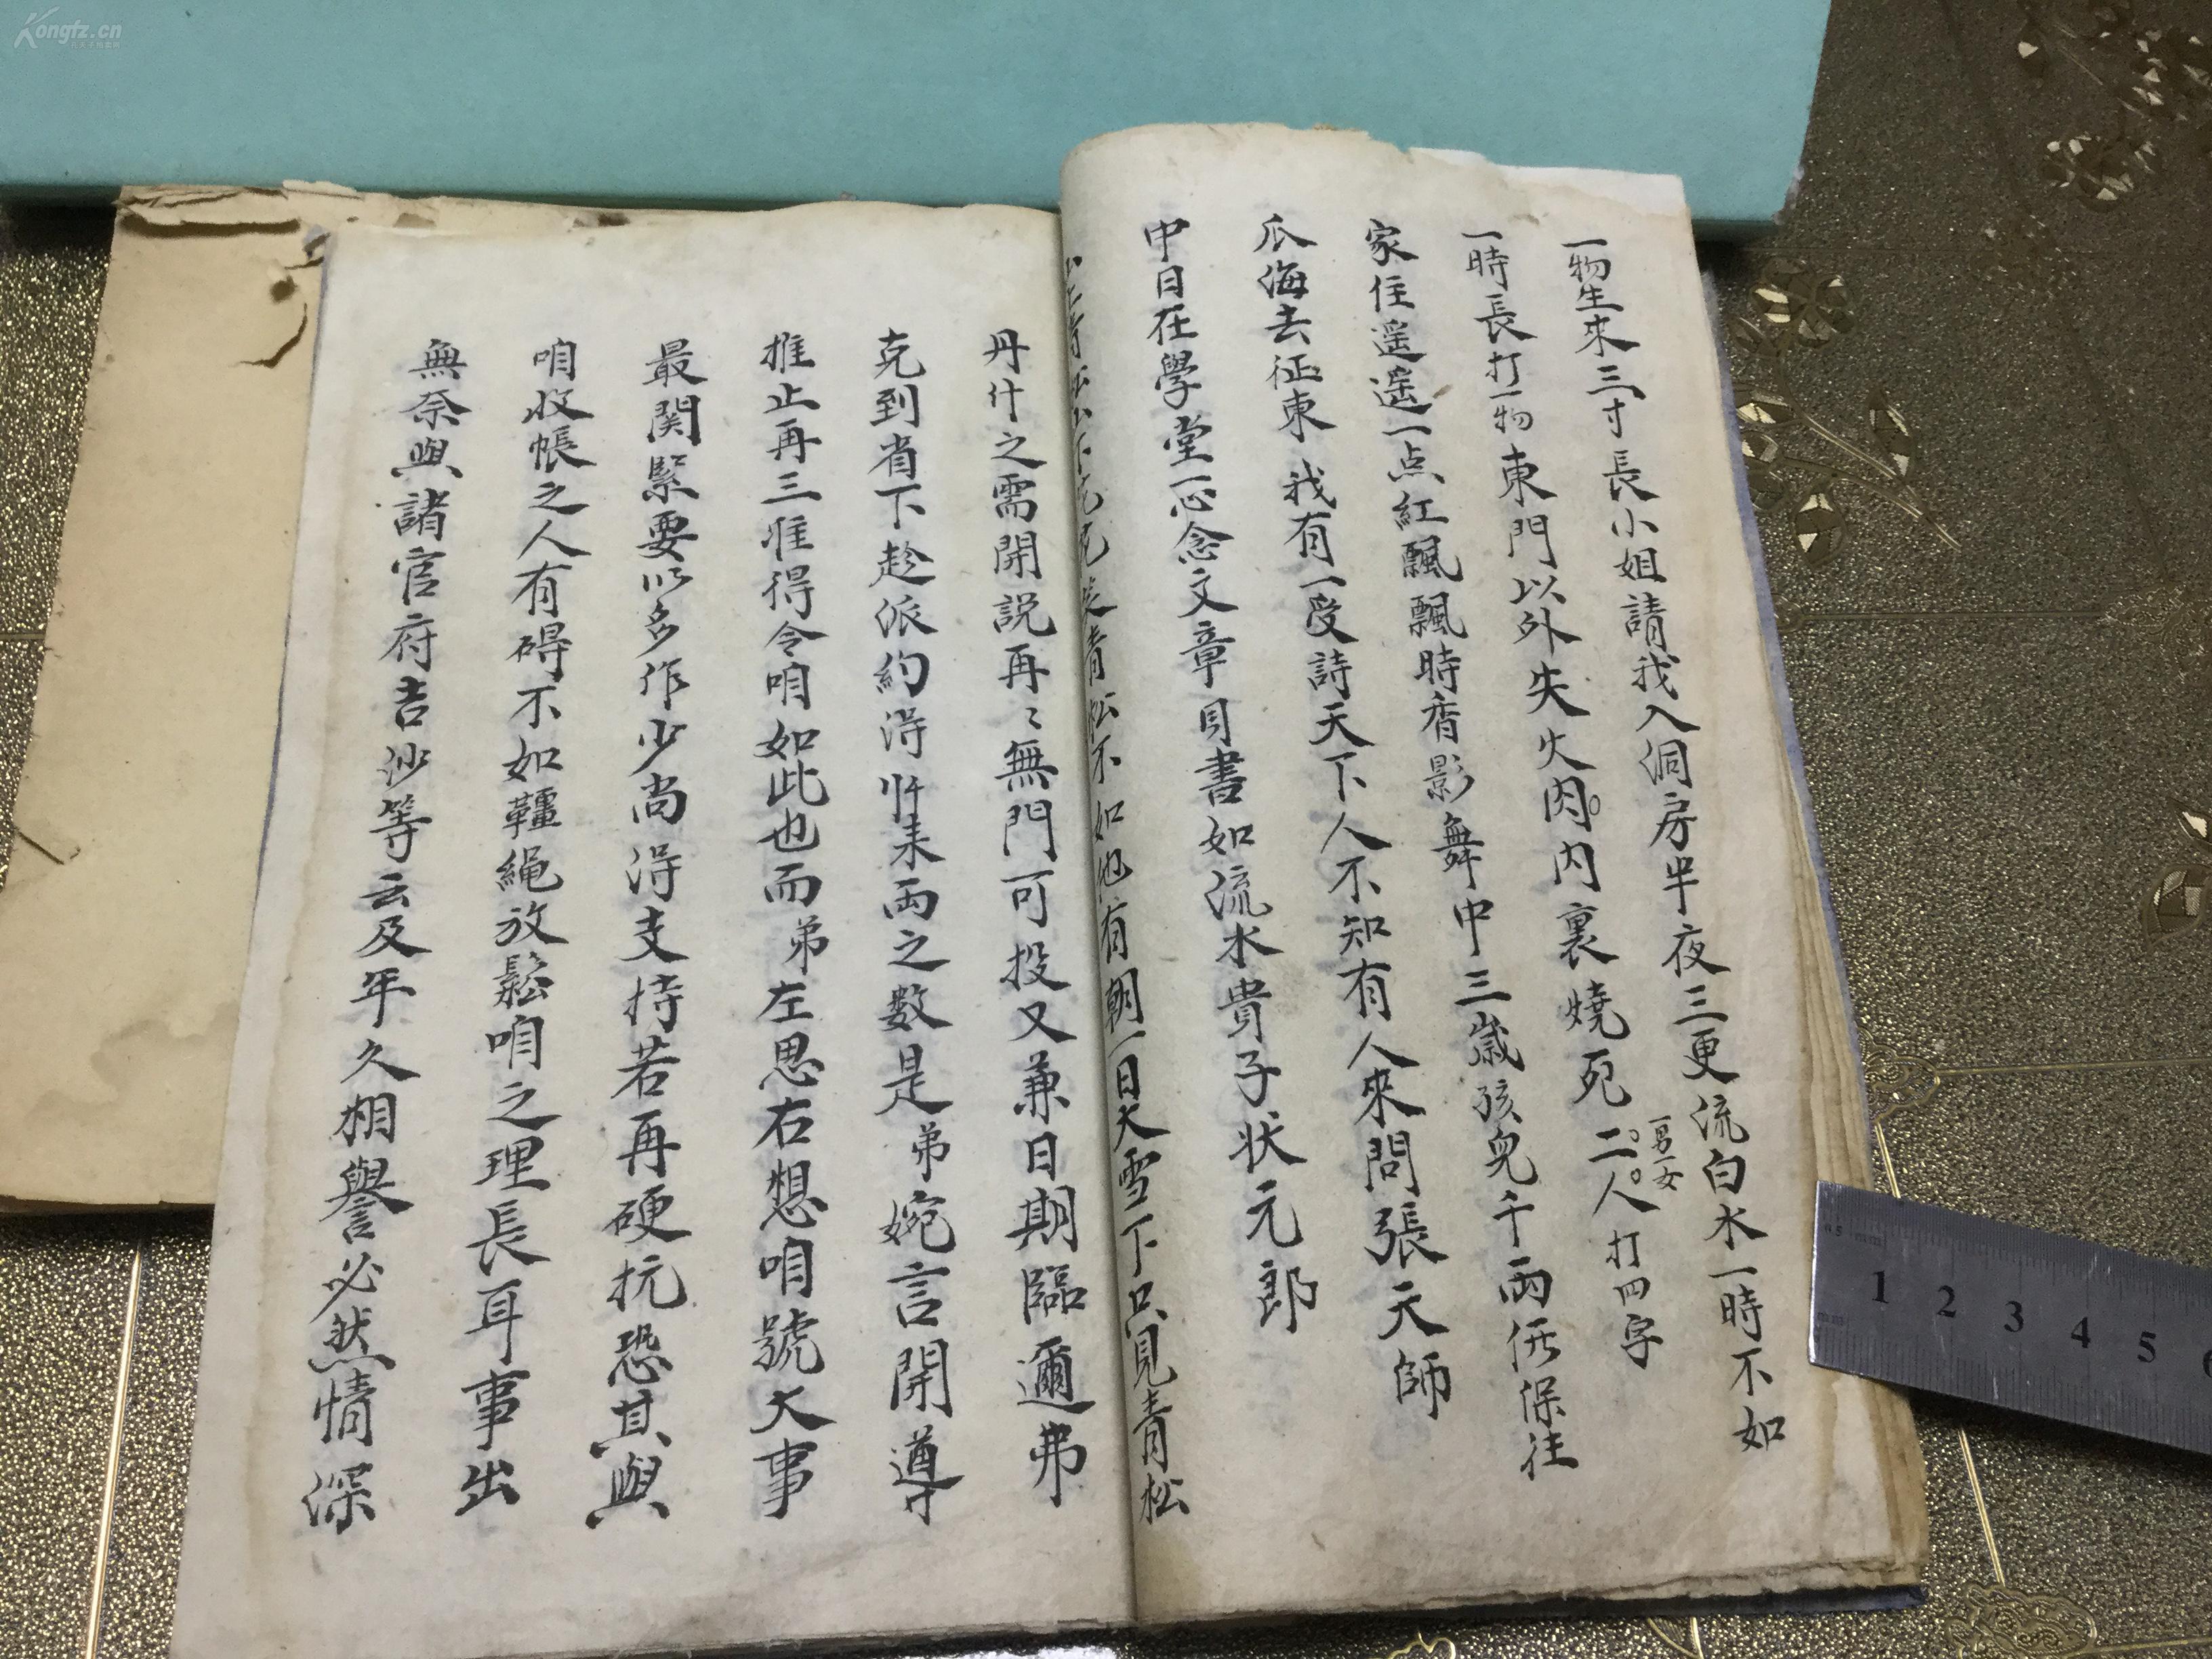 一物生來三寸長小姐請我入洞房半夜三更流白水一時不如
一時長打一物東門以外失火肉內裏燒死二人打四字
一男一女
家住遥遥一点紅飄飄時香影舞中三歲孩兒千兩保往
瓜海去征東我有一受詩天下人不知有人來問張天師
中日在學堂一心念文章目書如流水貴子状元郎
青松不如他有朝一日大雪下只見青松
丹什之需開説再〻無門可投又兼日期臨邇弗
克到省下趁派約得來兩之數是弟婉言開導
推止再三准得令咱如此也而弟左思右想咱號大事
最関緊要以多作少尚得支持若再硬抗恐其與
咱收帳之人有碍不如韁繩放鬆咱之理長耳事出
無奈與諸官府吉沙等云及年久相譽必然情深
Kongfz.cn
1 2 3 4 5